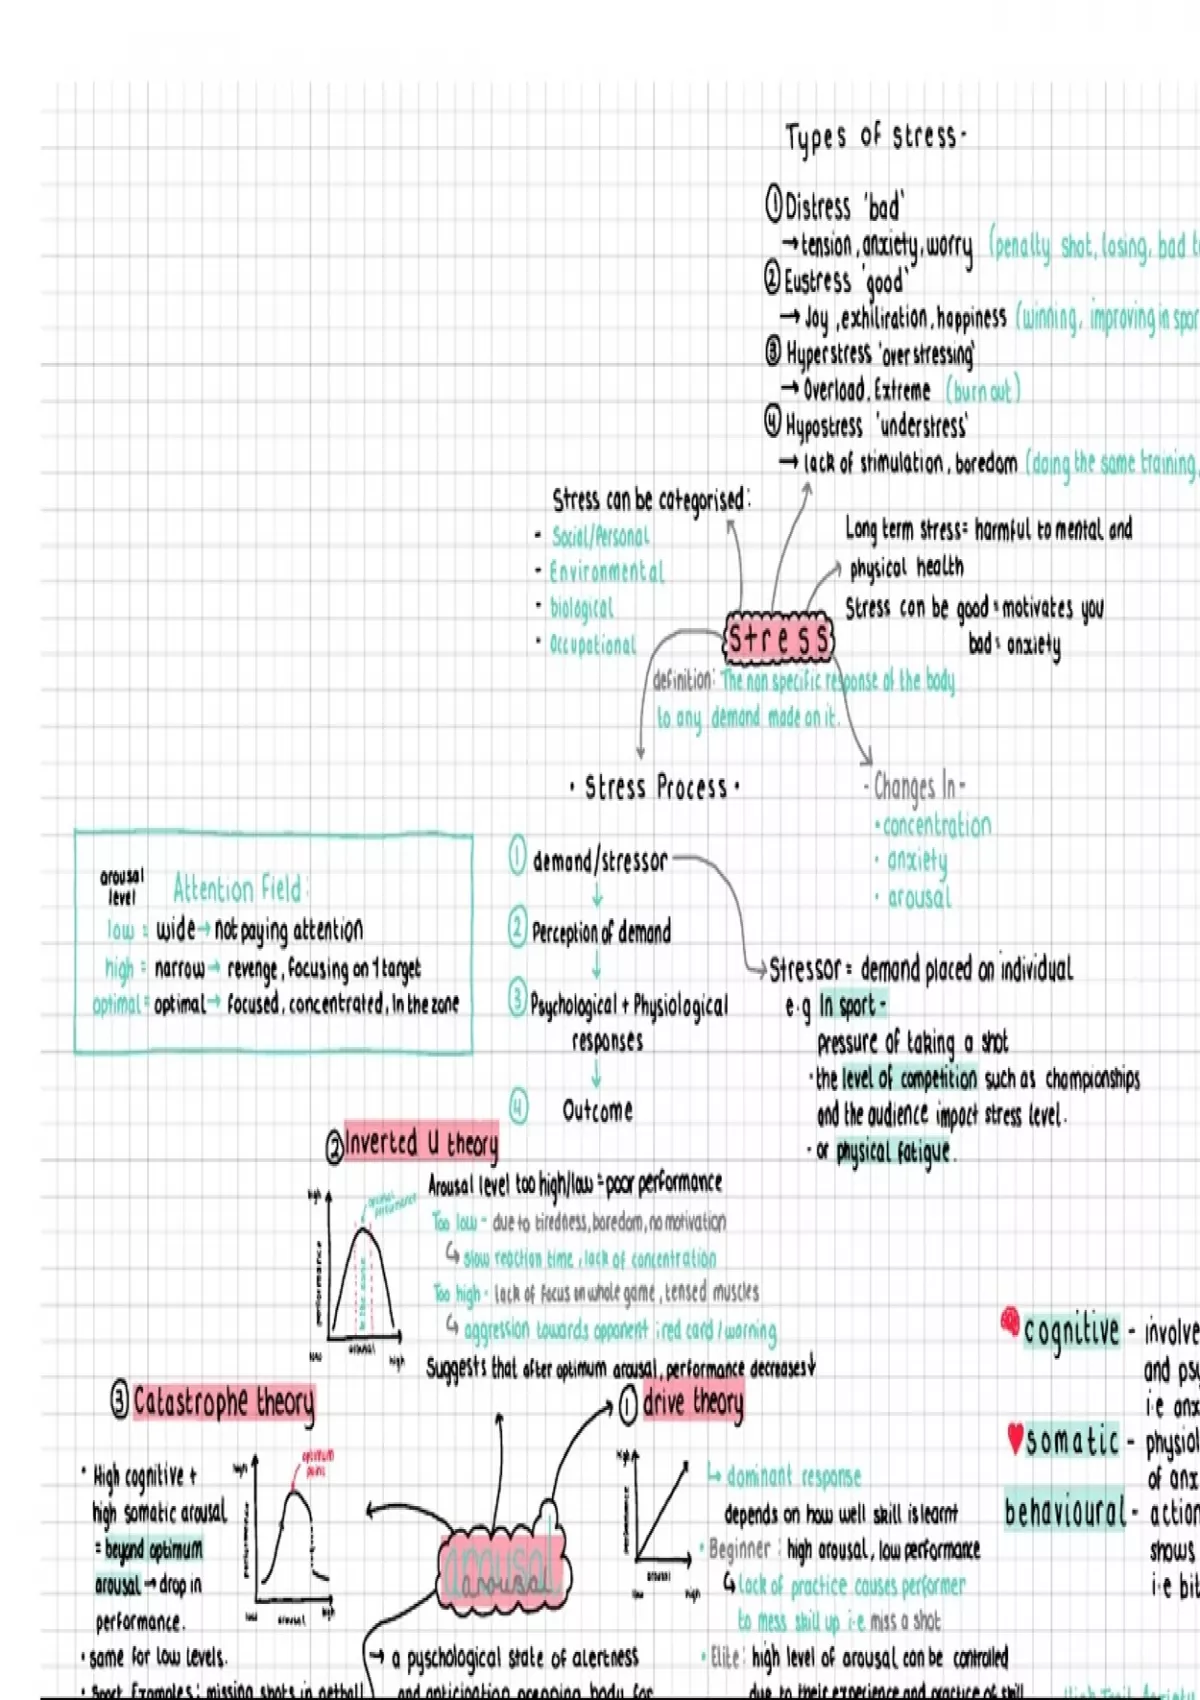 Types of stress-
① Distress 'bad'
→ tension, anxiety, worry (penalty shot, losing, bad
② Eustress 'good'
→ Joy, exhiliration, happiness (winning, improving in
③ Hyperstress 'over stressing'
→ Overload, Extreme (burn out)
④ Hypostress 'understress'
→ lack of stimulation, boredom (doing the same training,
Stress can be categorised:
- Social/Personal
- Environmental
• biological
• Occupational
Long term stress = harmful to mental and
physical health
Stress can be good = motivates you
bad = anxiety
stress
definition: The non specific response of the body
to any demand made on it.
• Stress Process •
① demand/stressor
↓
② Perception of demand
↓
③ Psychological + Physiological
responses
↓
④ Outcome
- Changes In -
• concentration
• anxiety
• arousal
Stressor = demand placed on individual
e.g In sport -
pressure of taking a shot
• the level of competition such as championships
and the audience impact stress level.
• or physical fatigue.
arousal
level
Attention Field:
low = wide → not paying attention
high = narrow → revenge, focusing on 1 target
optimal = optimal → focused, concentrated, In the zone
② Inverted U theory
high
performance
low
arousal
high
Arousal level too high/low = poor performance
Too low - due to tiredness, boredom, no motivation
↳ slow reaction time, lack of concentration
Too high - lack of focus on whole game, tensed muscles
↳ aggression towards opponent i red card / warning
Suggests that after optimum arousal, performance decreases ↓
③ Catastrophe theory
• High cognitive +
high somatic arousal
= beyond optimum
arousal → drop in
performance.
• same for low levels.
• Sport Examples: missing shots in netball
high
optimum
point
performance
low
arousal
high
arousal
→ a pyschological state of alertness
and anticipation prepping body for
① drive theory
High
performance
low
arousal
high
↳ dominant response
depends on how well skill is learnt
• Beginner: high arousal, low performance
↳ lack of practice causes performer
to mess skill up i.e miss a shot
• Elite: high level of arousal can be controlled
due to their experience and practice of skill
cognitive - involve
and
i.e
somatic -
of
behavioural - action
shows
i.e